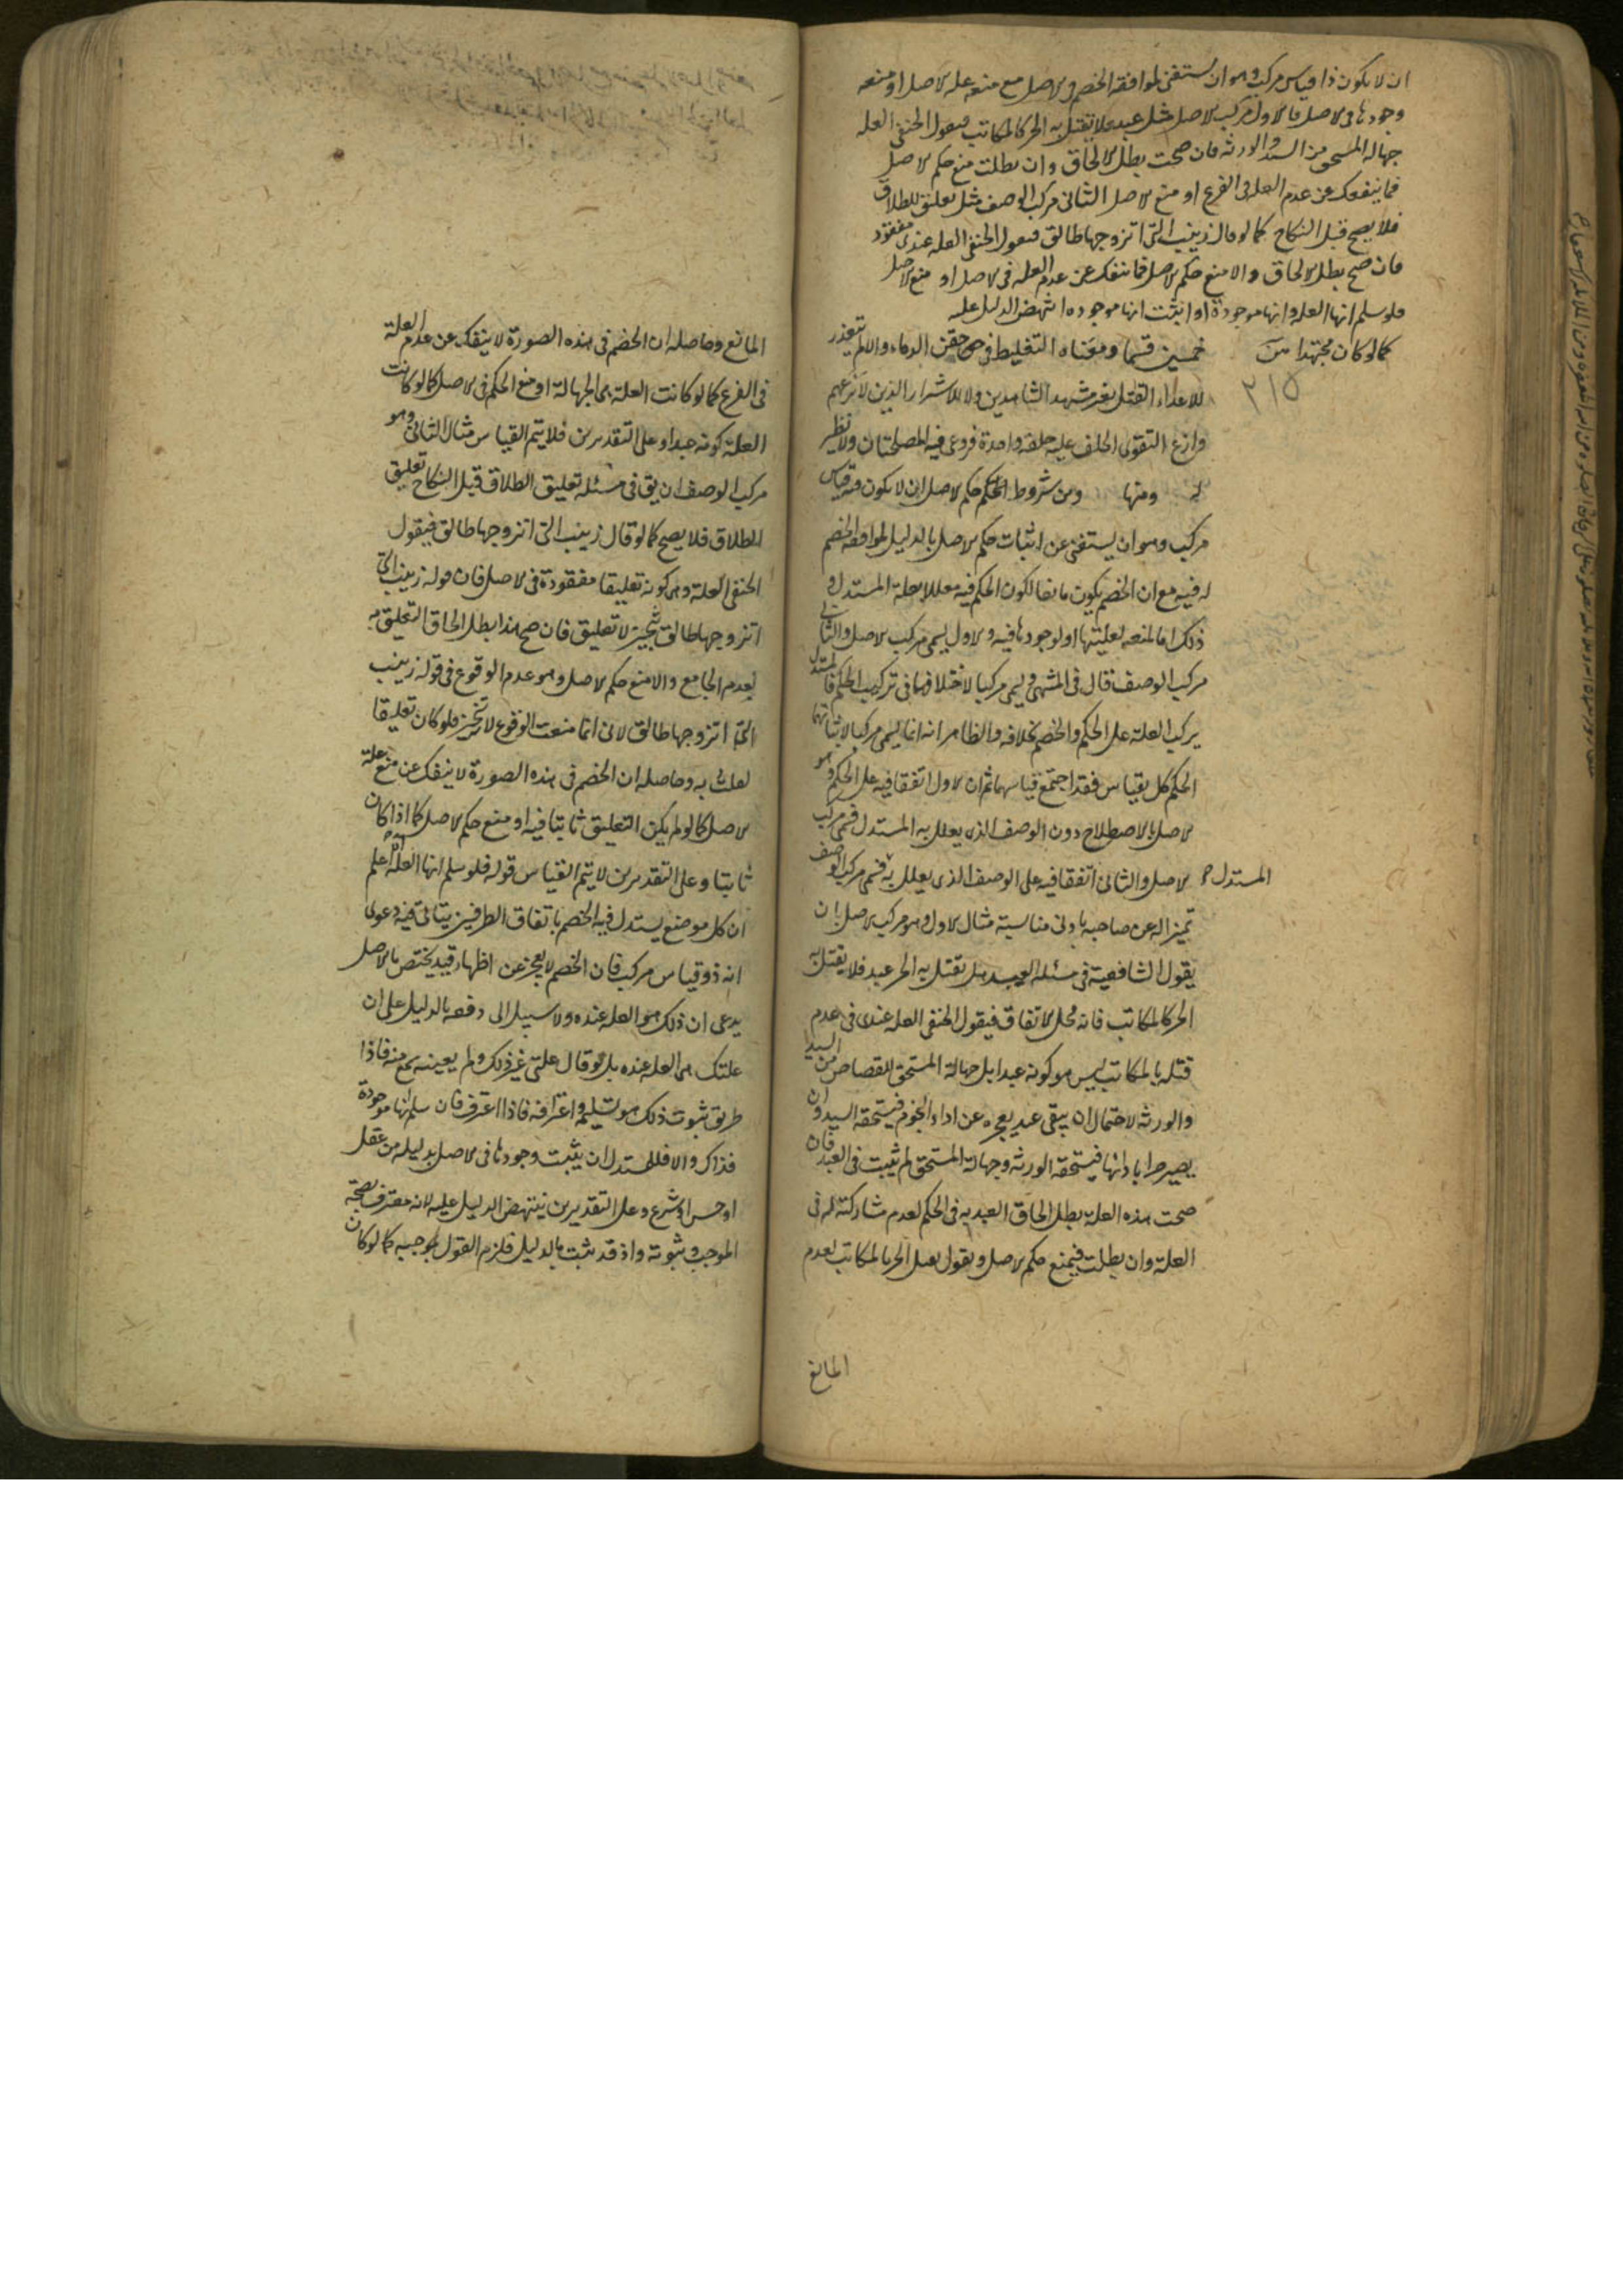 ان لا يكون ذا قياس مركب وهو ان يستغنى لموافقة الخصم فى الاصل مع منعه علة الاصل او منعه
وجودها فى الاصل فالاول مركب الاصل مثل عبد فلا يقتل به الحر كالمكاتب فيقول الحنفى العلة
جهالة المستحق من السيد والورثة فان صحت بطل الالحاق وان بطلت منع حكم الاصل
فما ينفك عن عدم العلة فى الفرع او منع الاصل الثانى مركب الوصف مثل تعليق للطلاق
فلا يصح قبل النكاح كما لو قال زينب التى اتزوجها طالق فيقول الحنفى العلة عندى مفقود
فان صح بطل الالحاق والا منع حكم الاصل فما ينفك عن عدم العلة فى الاصل او منع الاصل
فلو سلم انها العلة وانها موجودة او اثبت انها موجوده انتهض الدليل عليه
كما لو كان مجتهدا من خمسين قسما ومعناه التغليط فى حق حقن الدماء واللم يتعذر
٢١٥
للاعداء القتل بغير مشهد الشاهدين ولا للاشرار الذين لا يزعهم
وازع التقوى الحلف عليه حلفة واحدة فروعى فيه المصلحتان ولا نظير
له ومنها ومن شروط الحكم حكم الاصل ان لا يكون فيه قياس
مركب وهو ان يستغنى عن اثبات حكم الاصل بالدليل لموافقة الخصم
له فيه مع ان الخصم يكون مانعا لكون الحكم فيه معللا بعلة المستدل و
ذلك اما لمنعه لعليتها او لوجودها فيه والاول يسمى مركب الاصل والثانى
مركب الوصف قال فى المنتهى ويسمى مركبا لاختلافهما فى تركيب الحكم فالمستدل
يركب العلة على الحكم والخصم بخلافه والظاهر انه انما يسمى مركبا لاثباتهما
الحكم كل بقياس فقد اجتمع قياسهما ثم ان الاول اتفقا فيه على الحكم وهو
الاصل بالاصطلاح دون الوصف الذى يعلل به المستدل فسمى مركب
الاصل والثانى اتفقا فيه على الوصف الذى يعلل به فسمى مركب الوصف
المستدل
تميزا له عن صاحبه بادنى مناسبة مثال الاول وهو مركب الاصل ان
يقول الشافعية فى مسئلة العبد هل يقتل به الحر عبد فلا يقتل به
الحر كالمكاتب فانه محل الاتفاق فيقول الحنفى العلة عندى فى عدم
قتله بالمكاتب ليس هو كونه عبدا بل جهالة المستحق للقصاص من السيد
والورثة لاحتمال ان يبقى عبد بعجزه عن اداء النجوم فيستحقه السيد وان
يصير حرا بادائها فيستحقه الورثة وجهالة المستحق لم تثبت فى العبد فان
صحت هذه العلة بطل الحاق العبد به فى الحكم لعدم مشاركته له فى
العلة وان بطلت فيمنع حكم الاصل ويقول بقتل الحر بالمكاتب لعدم
المانع
المانع وحاصله ان الخصم فى هذه الصورة لا ينفك عن عدم العلة
فى الفرع كما لو كانت العلة هى الجهالة او منع الحكم فى الاصل كما لو كانت
العلة كونه عبدا وعلى التقديرين فلا يتم القياس مثال الثانى وهو
مركب الوصف ان يق فى مسئلة تعليق الطلاق قبل النكاح تعليق
الطلاق فلا يصح كما لو قال زينب التى اتزوجها طالق فيقول
الحنفى العلة وهى كونه تعليقا مفقودة فى الاصل فان قوله زينب التى
اتزوجها طالق تنجيز لا تعليق فان صح هذا بطل الحاق التعليق به
لعدم الجامع والا منع حكم الاصل وهو عدم الوقوع فى قوله زينب
التى اتزوجها طالق لانى انما منعت الوقوع لانه تنجيز فلو كان تعليقا
لقلت به وحاصله ان الخصم فى هذه الصورة لا ينفك عن منع علة
الاصل كما لو لم يكن التعليق ثابتا فيه او منع حكم الاصل كما اذا كان
ثابتا وعلى التقديرين لا يتم القياس قوله فلو سلم انها العلة اعلم
ان كل موضع يستدل فيه الخصم باتفاق الطرفين يتاتى فيه دعوى
انه ذو قياس مركب فان الخصم لا يعجز عن اظهار قيد يختص بالاصل
يدعى ان ذلك هو العلة عنده ولا سبيل الى دفعه بالدليل على ان
علتك هى العلة عنده بل لو قال علتى غير ذلك ولم يعينه سمع منه فاذا
طريق ثبوت ذلك هو تسليمه واعترافه فاذا اعترف فان سلم انها موجودة
فذاك والا فللمستدل ان يثبت وجودها فى الاصل بدليله من عقل
او حس او شرع وعلى التقديرين ينتهض الدليل عليه لانه معترف بصحة
الموجب وثبوته واذ قد ثبت بالدليل فلزم القول بموجبه كما لو كان